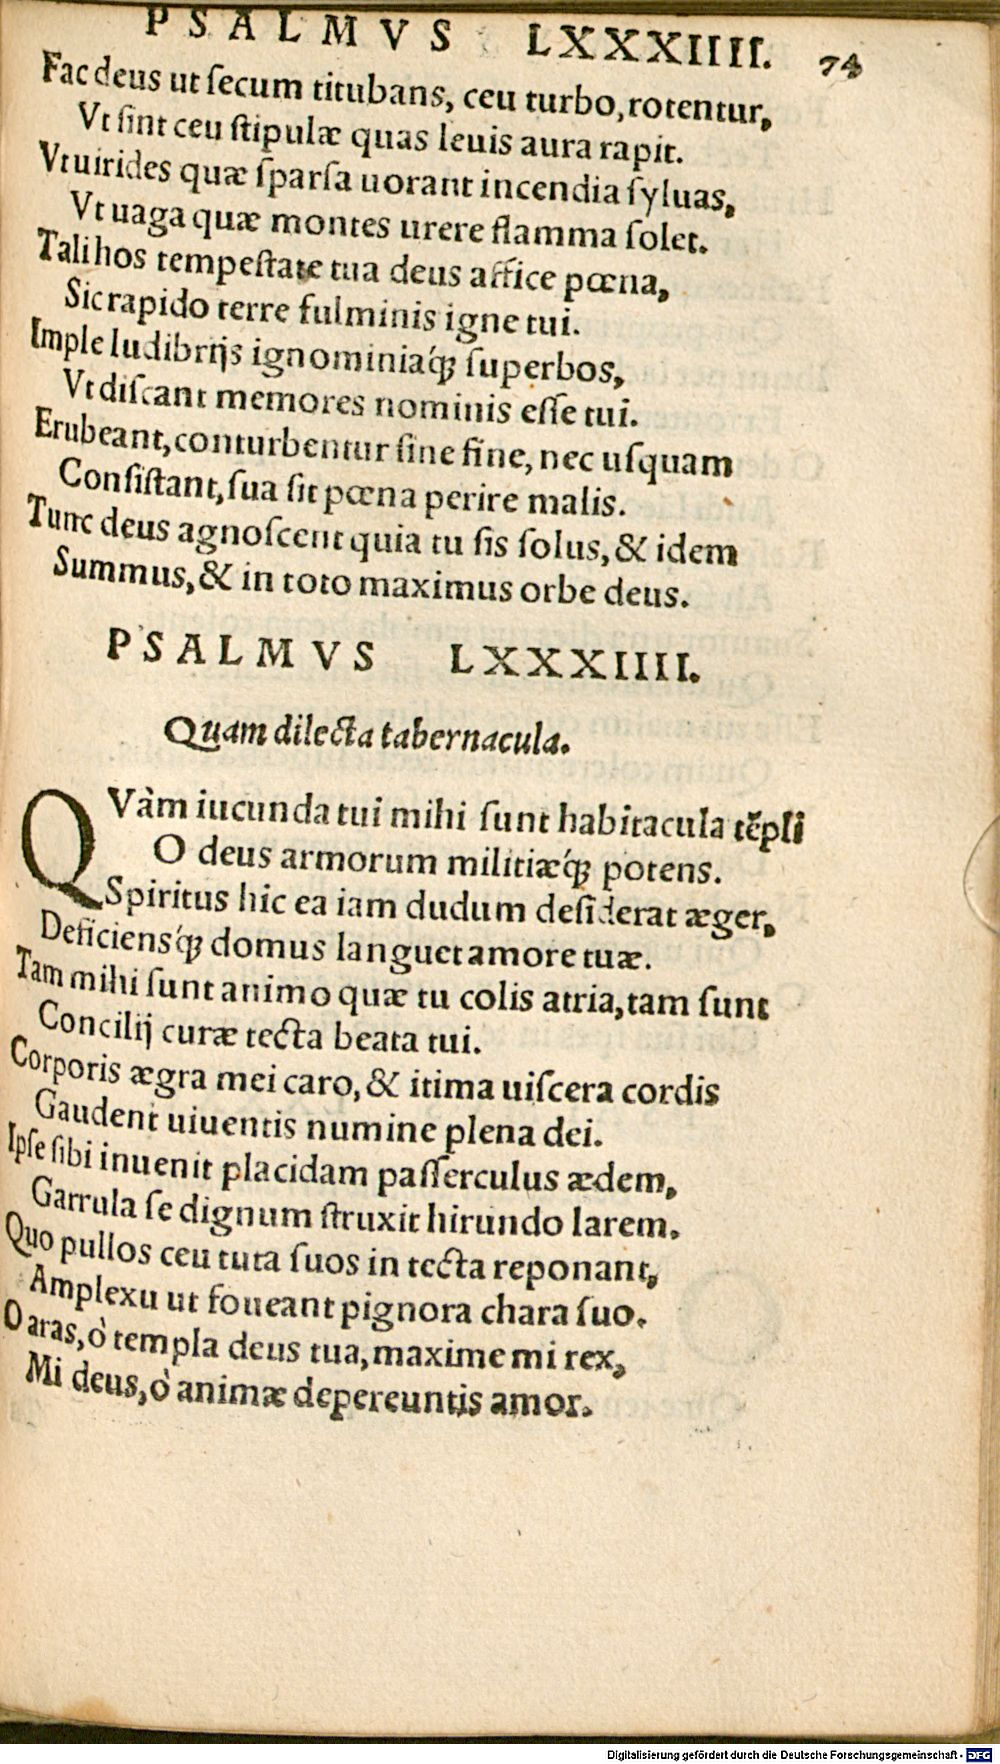 PSALMVS LXXXIIII. 74
Fac deus ut ſecum titubans, ceu turbo, rotentur,
Vt ſint ceu ſtipulæ quas leuis aura rapit.
Vt uirides quæ ſparſa uorant incendia ſyluas,
Vt uaga quæ montes urere flamma ſolet.
Tali hos tempeſtate tua deus affice pœna,
Sic rapido terre fulminis igne tui.
Imple ludibrijs ignominiaq́ꝫ ſuperbos,
Vt diſcant memores nominis eſſe tui.
Erubeant, conturbentur ſine fine, nec uſquam
Conſiſtant, ſua ſit pœna perire malis.
Tunc deus agnoſcent quia tu ſis ſolus, & idem
Summus, & in toto maximus orbe deus.
PSALMVS LXXXIIII.
Quam dilecta tabernacula.
QVàm iucunda tui mihi ſunt habitacula tẽpli
O deus armorum militiæq́ꝫ potens.
Spiritus hic ea iam dudum deſiderat æger,
Deficiensq́ꝫ domus languet amore tuæ.
Tam mihi ſunt animo quæ tu colis atria, tam ſunt
Concilij curæ tecta beata tui.
Corporis ægra mei caro, & itima uiſcera cordis
Gaudent uiuentis numine plena dei.
Ipſe ſibi inuenit placidam paſſerculus ædem,
Garrula ſe dignum ſtruxit hirundo larem.
Quo pullos ceu tuta ſuos in tecta reponant,
Amplexu ut foueant pignora chara ſuo.
O aras, ò templa deus tua, maxime mi rex,
Mi deus, ò animæ depereuntis amor.
Digitalisierung gefördert durch die Deutsche Forschungsgemeinschaft - DFG